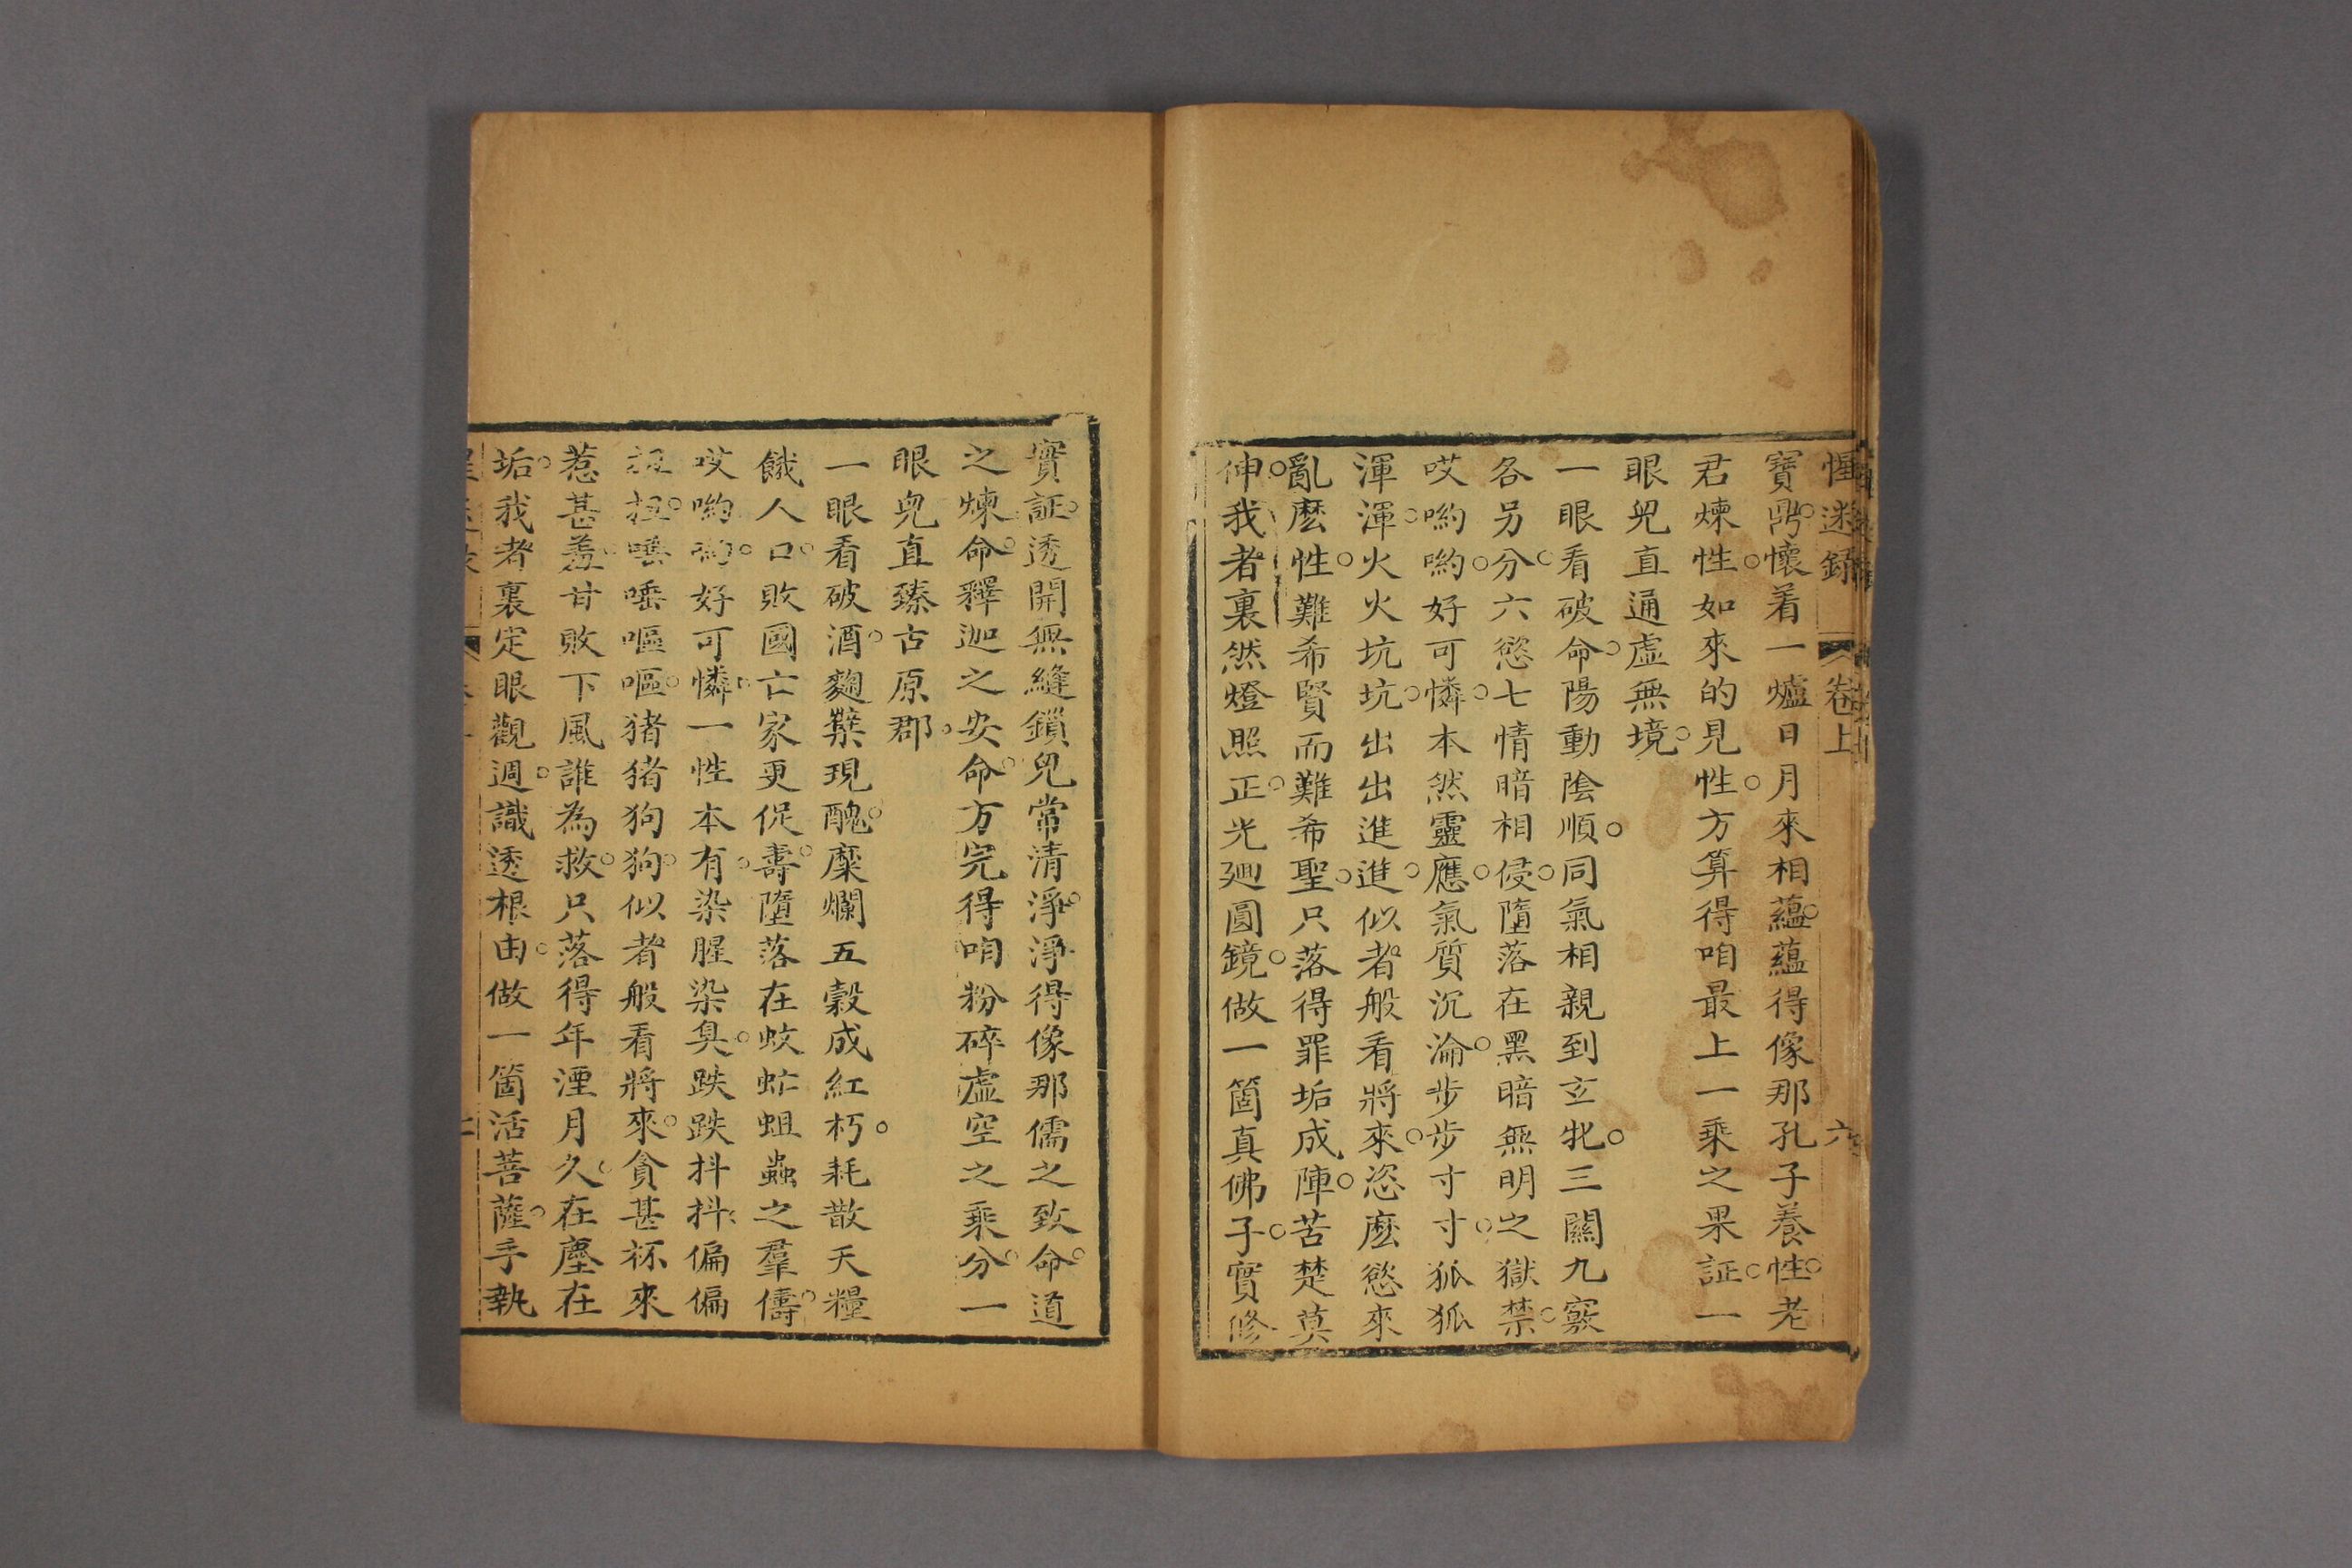 惺迷錄 卷上 六
寶鼎。懷着一爐日月來相蘊。蘊得像那孔子養性。老
君煉性。如來的見性。方算得咱最上一乘之果証。一
眼兒直通虛無境。
一眼看破命。陽動陰順。同氣相親到玄牝。三關九竅
各另分。六慾七情暗相侵。墮落在黑暗無明之獄禁。
哎喲喲。好可憐。本然靈應。氣質沉淪。步步寸寸。狐狐
渾渾。火火坑坑。出出進進。似者般看將來。恣麽慾來
亂麽性。難希賢而難希聖。只落得罪垢成陣。苦楚莫
伸。我者裏然燈照正。光廻圓鏡。做一箇真佛子。實修
實証。透開無縫鎖兒常清淨。淨得像那儒之致命。道
之煉命。釋迦之安命。方完得咱粉碎虛空之乘分。一
眼兒直臻古原郡。
一眼看破酒。麴櫱現醜。糜爛五穀成紅朽。耗散天糧
餓人口。敗國亡家更促壽。墮落在蚊虻蛆蟲之羣儔。
哎喲喲。好可憐。一性本有。染腥染臭。跌跌抖抖。偏偏
扭扭。唾唾嘔嘔。猪猪狗狗。似者般看將來。貪甚杯來
惹甚羞。甘敗下風誰為救。只落得年湮月久。在塵在
垢。我者裏定眼觀週。識透根由。做一箇活菩薩。手執